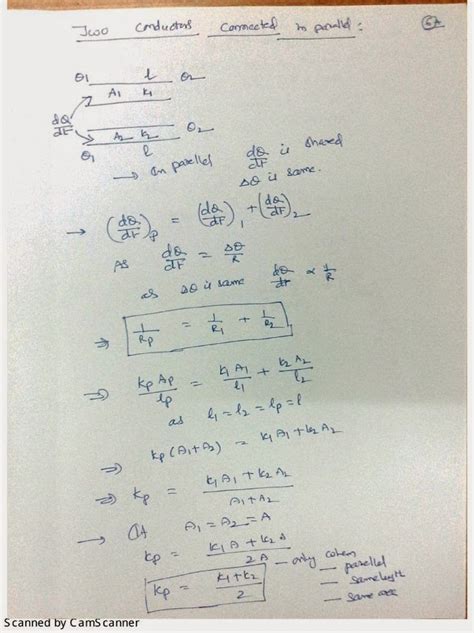 Two conductors connected in parallel:
θ1 l θ2
A1 K1
dQ/dT
A2 K2 θ2
θ1 l
→ In parallel dQ/dT is shared
Δθ is same.
→ (dQ/dT)p = (dQ/dT)1 + (dQ/dT)2
As dQ/dT = Δθ/R
as Δθ is same dQ/dt ∝ 1/R
⇒ 1/Rp = 1/R1 + 1/R2
⇒ Kp Ap/lp = K1 A1/l1 + K2 A2/l2
as l1 = l2 = lp = l
⇒ Kp (A1+A2) = K1A1 + K2A2
⇒ Kp = K1A1 + K2A2/A1+A2
→ If A1 = A2 = A
Kp = K1 A + K2 A/2A
Kp = K1+K2/2 — only when
— parallel
— same length
— same area
Scanned by CamScanner